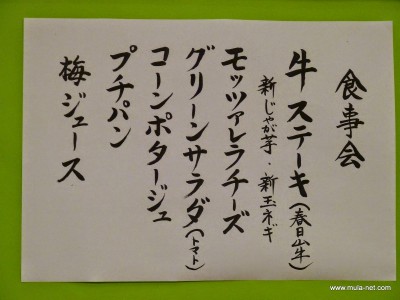 食事会
牛ステーキ(春日山牛)
新じゃが芋・新玉ネギ
モッツァレラチーズ
グリーンサラダ(トマト)
コーンポタージュ
プチパン
梅ジュース
www.mula-net.com